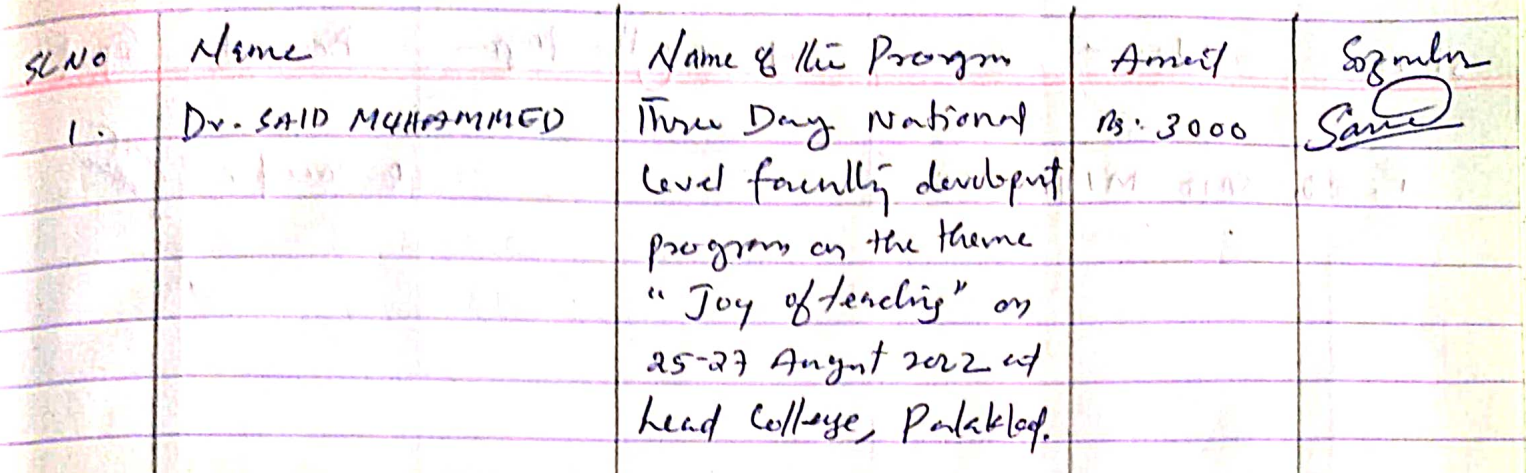 SL NO Name Name of the Program Amount Signature
1. Dr. SAID MUHAMMED Three Day National Rs. 3000
level faculty development
program on the theme
"Joy of teaching" on
25-27 August 2022 at
Lead College, Palakkad.